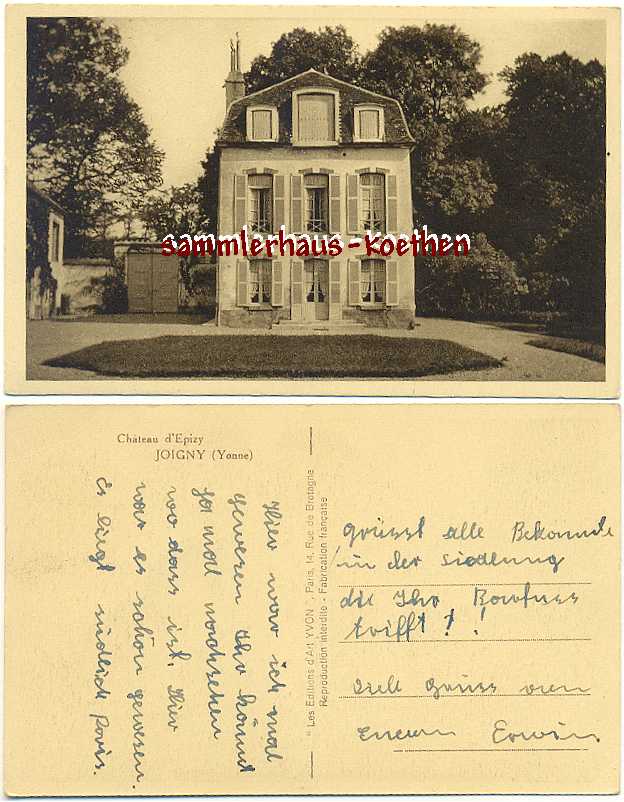 sammlerhaus-koethen
Château d'Epizy
JOIGNY (Yonne)
Hier war ich mal
gewesen Ihr könnt
ja mal nachsehen
wo dass ist. Hier
war es schön gewesen.
Es liegt südlich Paris.
"Les Editions d'Art YVON", Paris, 14, Rue de Bretagne
Reproduction interdite - Fabrication française
grüsst alle Bekannte
in der Siedlung
die Ihr
trifft!!
Viele Grüsse von
Eneurn Erwin